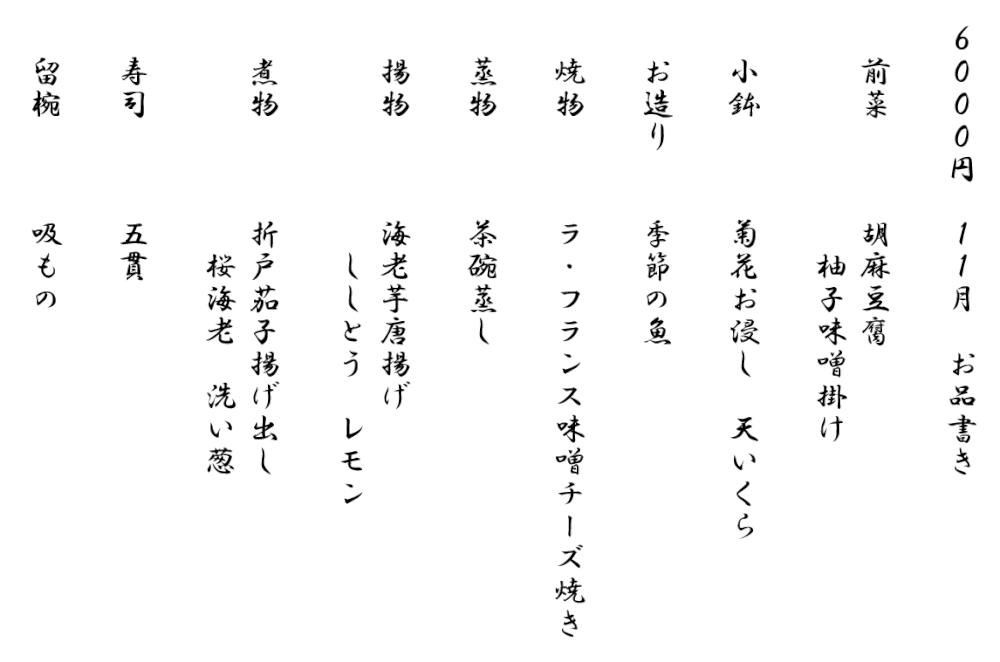 6000円 11月 お品書き
前菜 胡麻豆腐
柚子味噌掛け
小鉢 菊花お浸し 天いくら
お造り 季節の魚
焼物 ラ・フランス味噌チーズ焼き
蒸物 茶碗蒸し
揚物 海老芋唐揚げ
ししとう レモン
煮物 折戸茄子揚げ出し
桜海老 洗い葱
寿司 五貫
留椀 吸もの